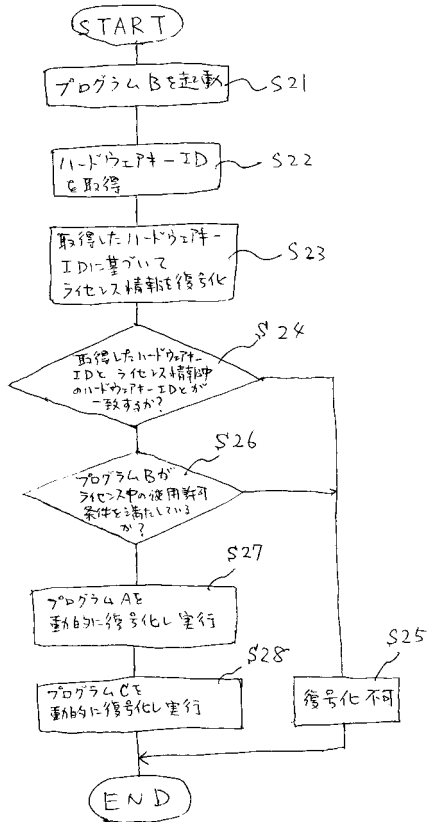 START
プログラムBを起動
S21
ハードウェアキーID
を取得
S22
取得したハードウェアキー
IDに基づいて
ライセンス情報を復号化
S23
S24
取得したハードウェアキー
IDと ライセンス情報中
のハードウェアキーIDとが
一致するか?
S26
プログラムBが
ライセンス中の使用許可
条件を満たしている
か?
S27
プログラムAを
動的に復号化し実行
S28
プログラムCを
動的に復号化し実行
S25
復号化不可
END